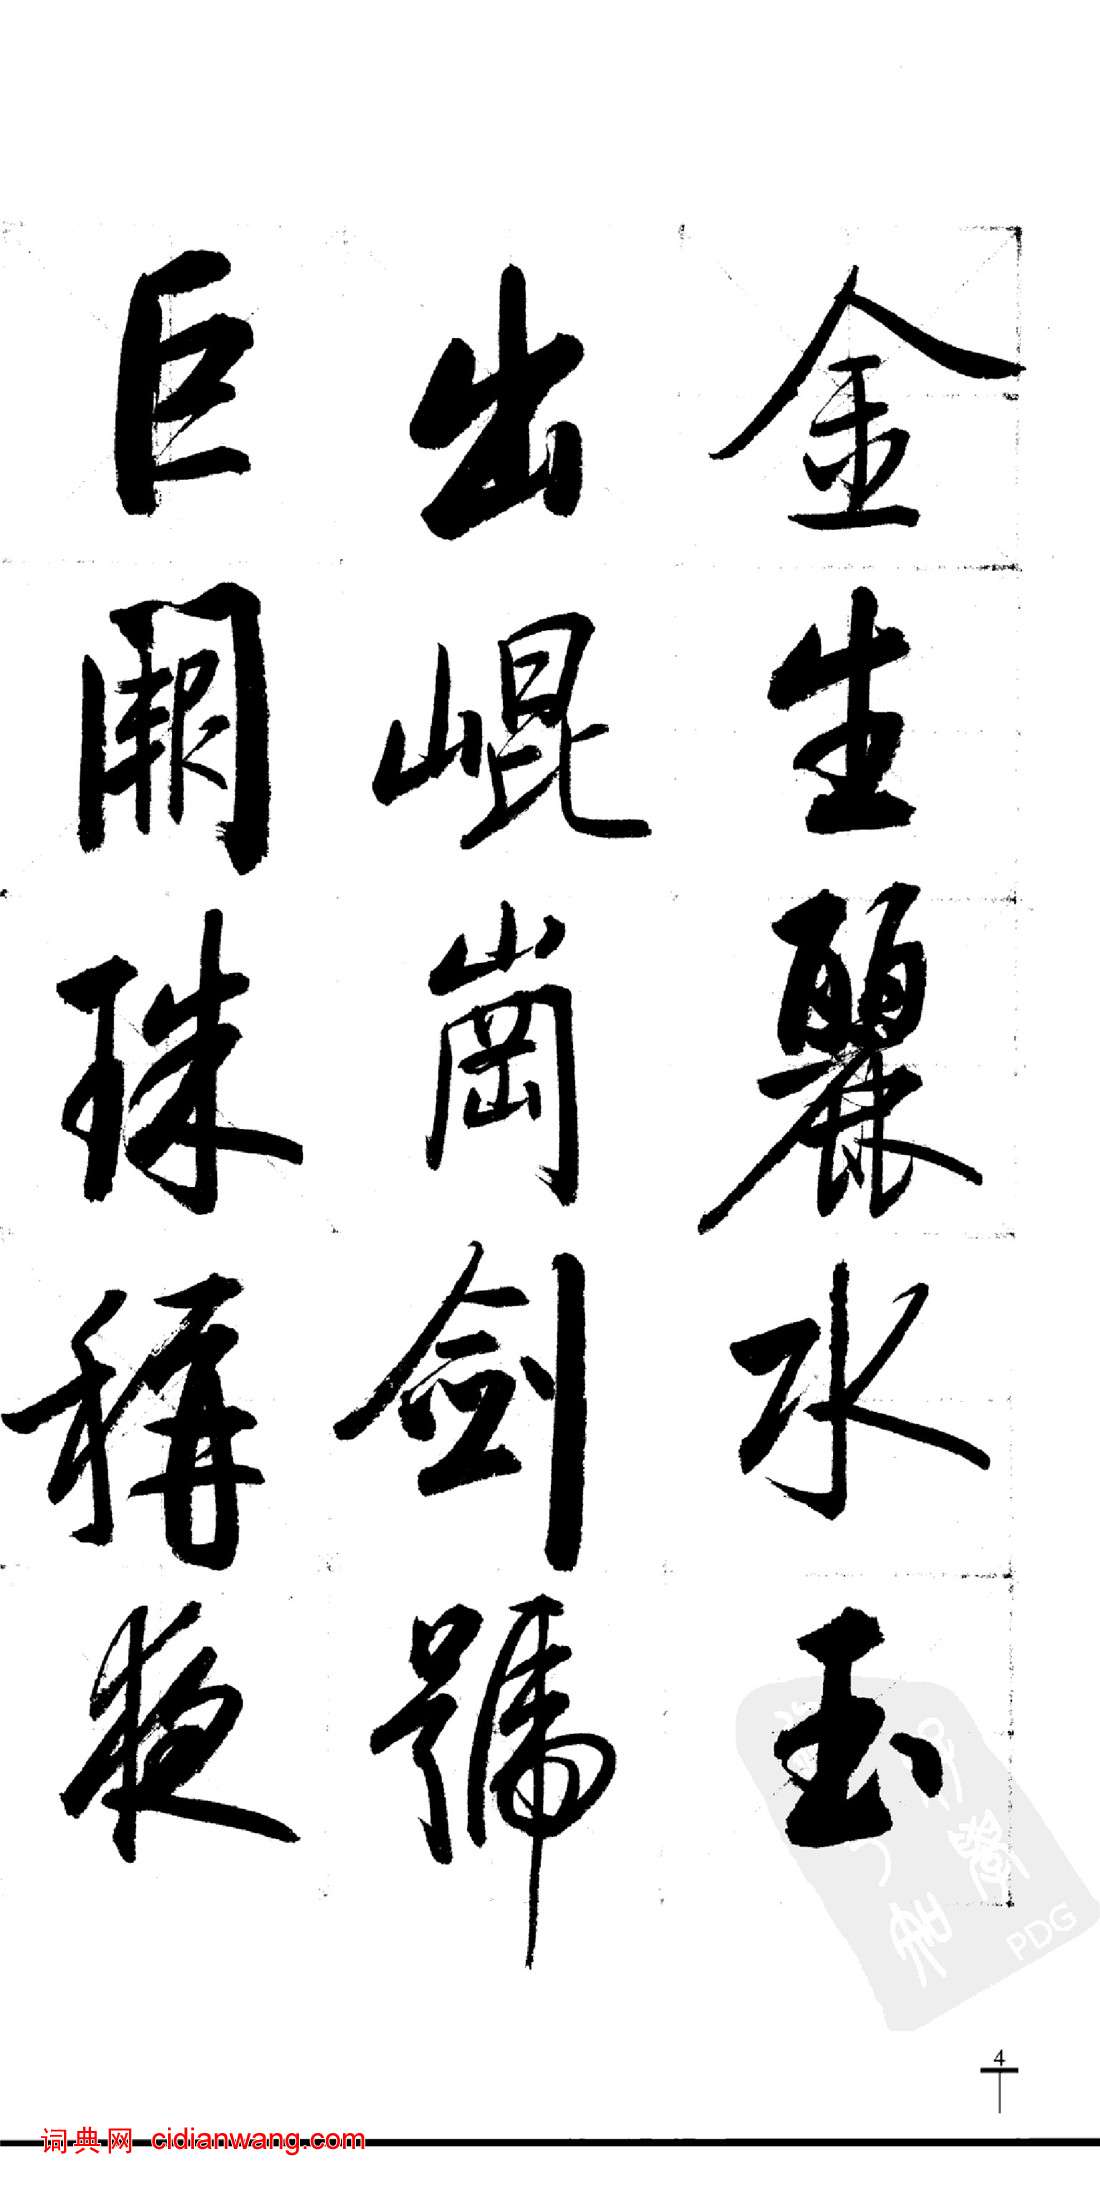 金生麗水玉
出崐崗劍號
巨闕珠稱夜
4
词典网 cidianwang.com
PDG